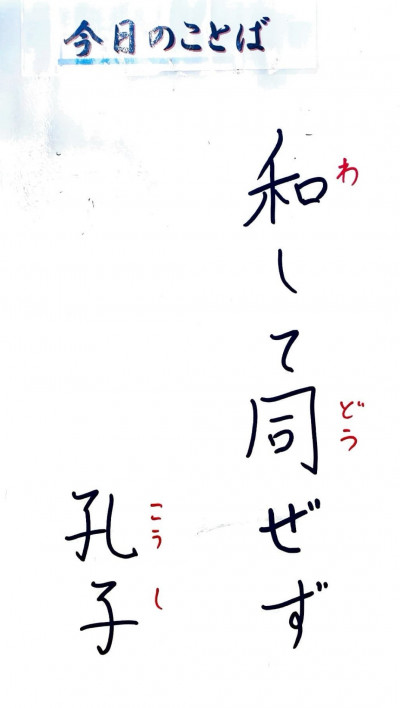 今日のことば
和して同ぜず
わ
どう
孔子
こうし